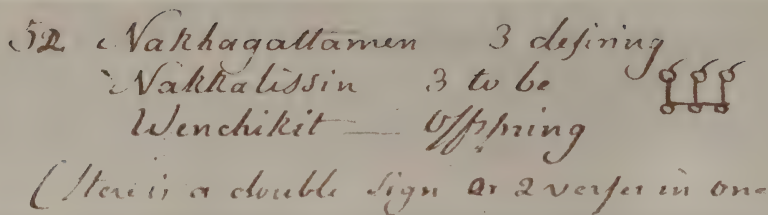 52 Nakhagattamen 3 desiring
Nakkalissin 3 to be
Wenchikit — Offspring
(Here is a double sign or 2 verses in one